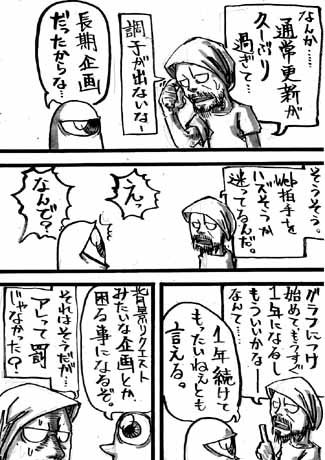 なんか……
通常更新が
久しぶり
過ぎて…
調子が出ないなー
長期企画
だったからな…
そうそう。
Web拍手を
ハズそうか
迷ってるんだ。
えっ
なんで?
グラフにつけ
始めてもうすぐ
1年になるし
もういいかなー
なんて…
1年続けて
もったいねぇとも
言える。
背景リクエスト
みたいな企画とか、
困る事になるぞ。
それはそうだが…
アレって罰
じゃなかった?